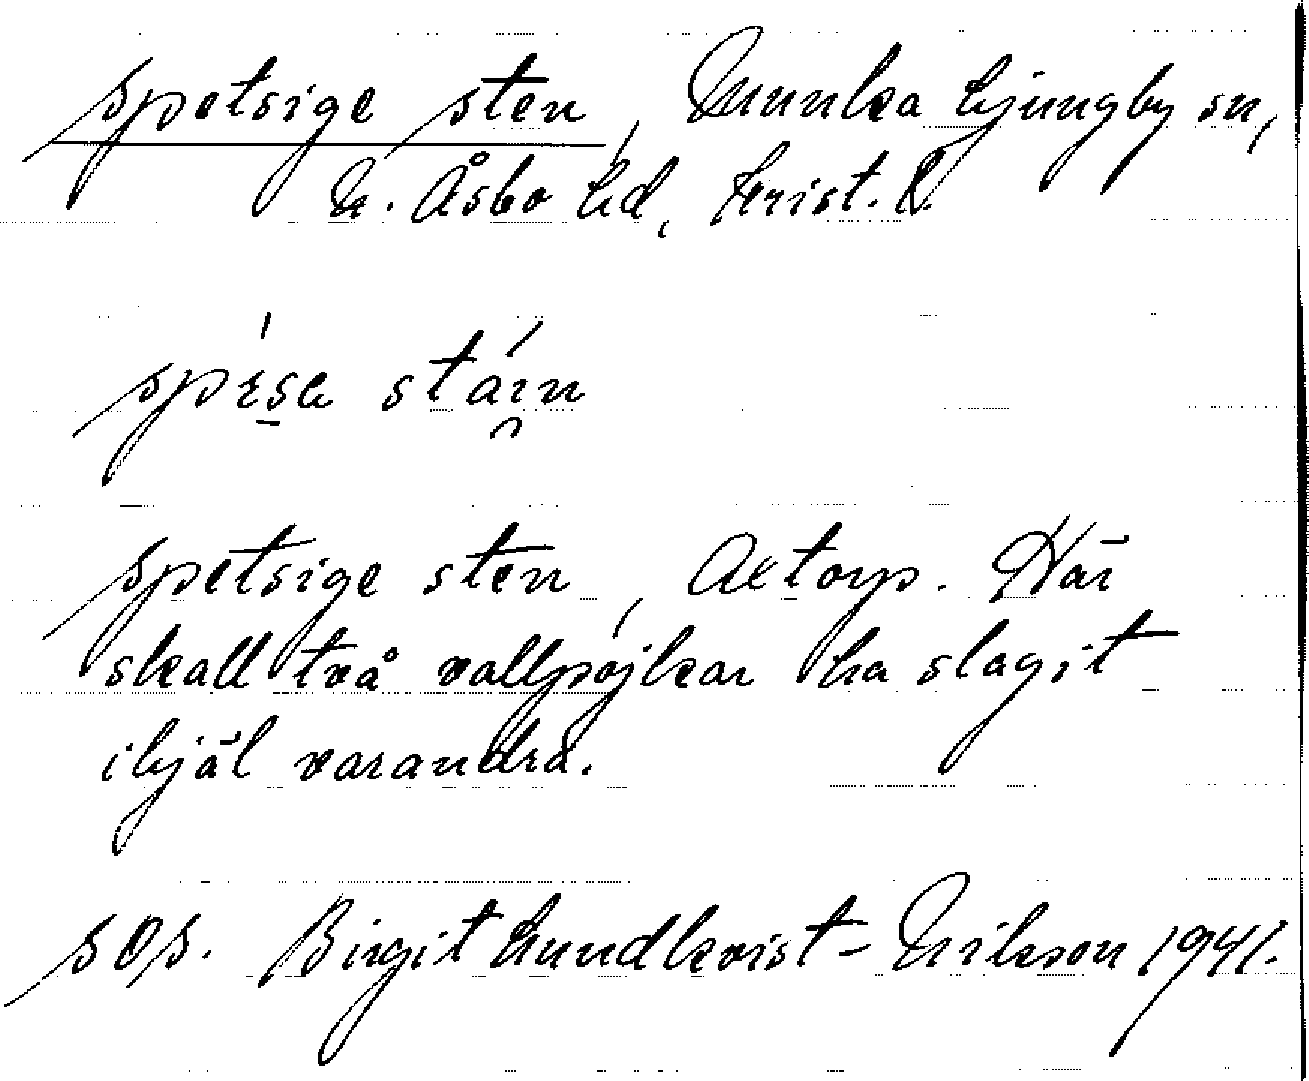 spetsige sten, Munka Ljungby sn,
N. Åsbo hd, Krist. l.
stáin
spetsige sten, Axtorp. Här
skall två vallpojkar ha slagit
ihjäl varandra.
sOs. Birgit Lundkvist-Nilsson 1941.